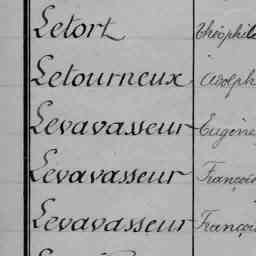 Letort Théophile
Letourneux Adolph
Levavasseur Eugène
Levavasseur François
Levavasseur François